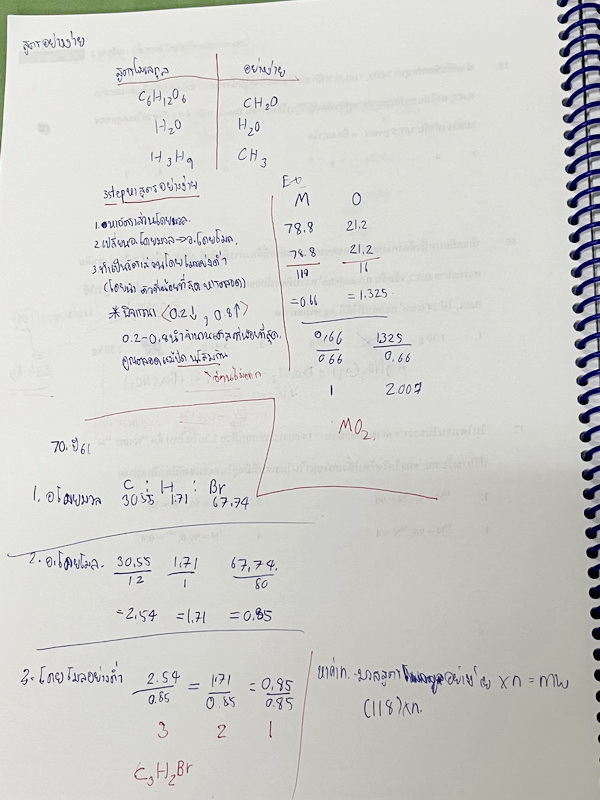 สูตรอย่างง่าย
สูตรโมเลกุล อย่างง่าย
C6H12O6 CH2O
H2O H2O
H3H9 CH3
3stepหาสูตรอย่างง่าย
1. หาอัตราส่วนโดยมวล.
2. เปลี่ยนอ.โดยมวล→อ.โดยโมล.
3. ทำเป็นอัตราส่วนโดยโมลอย่างต่ำ
(โดยนำ ตัวที่น้อยที่สุด มาหารตลอด)
* พิจารณา <0.2↓, 0.8↑>
0.2-0.8นำจำนวนเต็มที่น้อยที่สุด.
คูณตลอดแล้วปัด
Ex
M O
78.8 21.2
78.8/119 21.2/16
=0.66 =1.325
0.66/0.66 1.325/0.66
1 2.007
MO2
70. ปี61
1. อ.โดยมวล C : H : Br
30.55 1.71 67.74
2. อ.โดยโมล. 30.55/12 1.71/1 67.74./80
=2.54 =1.71 =0.85
3. โดยโมลอย่างต่ำ 2.54/0.85 = 1.71/0.85 = 0.85/0.85
3 2 1
C3H2Br
หาค่าn. มวลสูตรอย่างง่าย xn = mw
(118)xn.